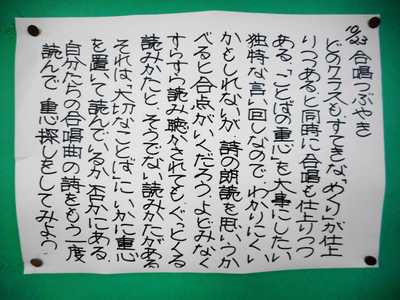 10/23 合唱つぶやき
どのクラスもすてきな「めくり」が仕上
りつつあると同時に合唱も仕上りつつ
ある。「ことばの重心」を大事にしたい
独特な言い回しなのでわかりにくい
かもしれないが、詩の朗読を思いうか
べると合点がいくだろう。よどみなく
すらすら読み聴かされてもぐっとくる
読みかたと、そうでない読みかたがある
それは、大切な「ことば」に、いかに重心
を置いて読んでいるか否かにある。
自分たちの合唱曲の詩をもう一度
読んで、重心探しをしてみよう